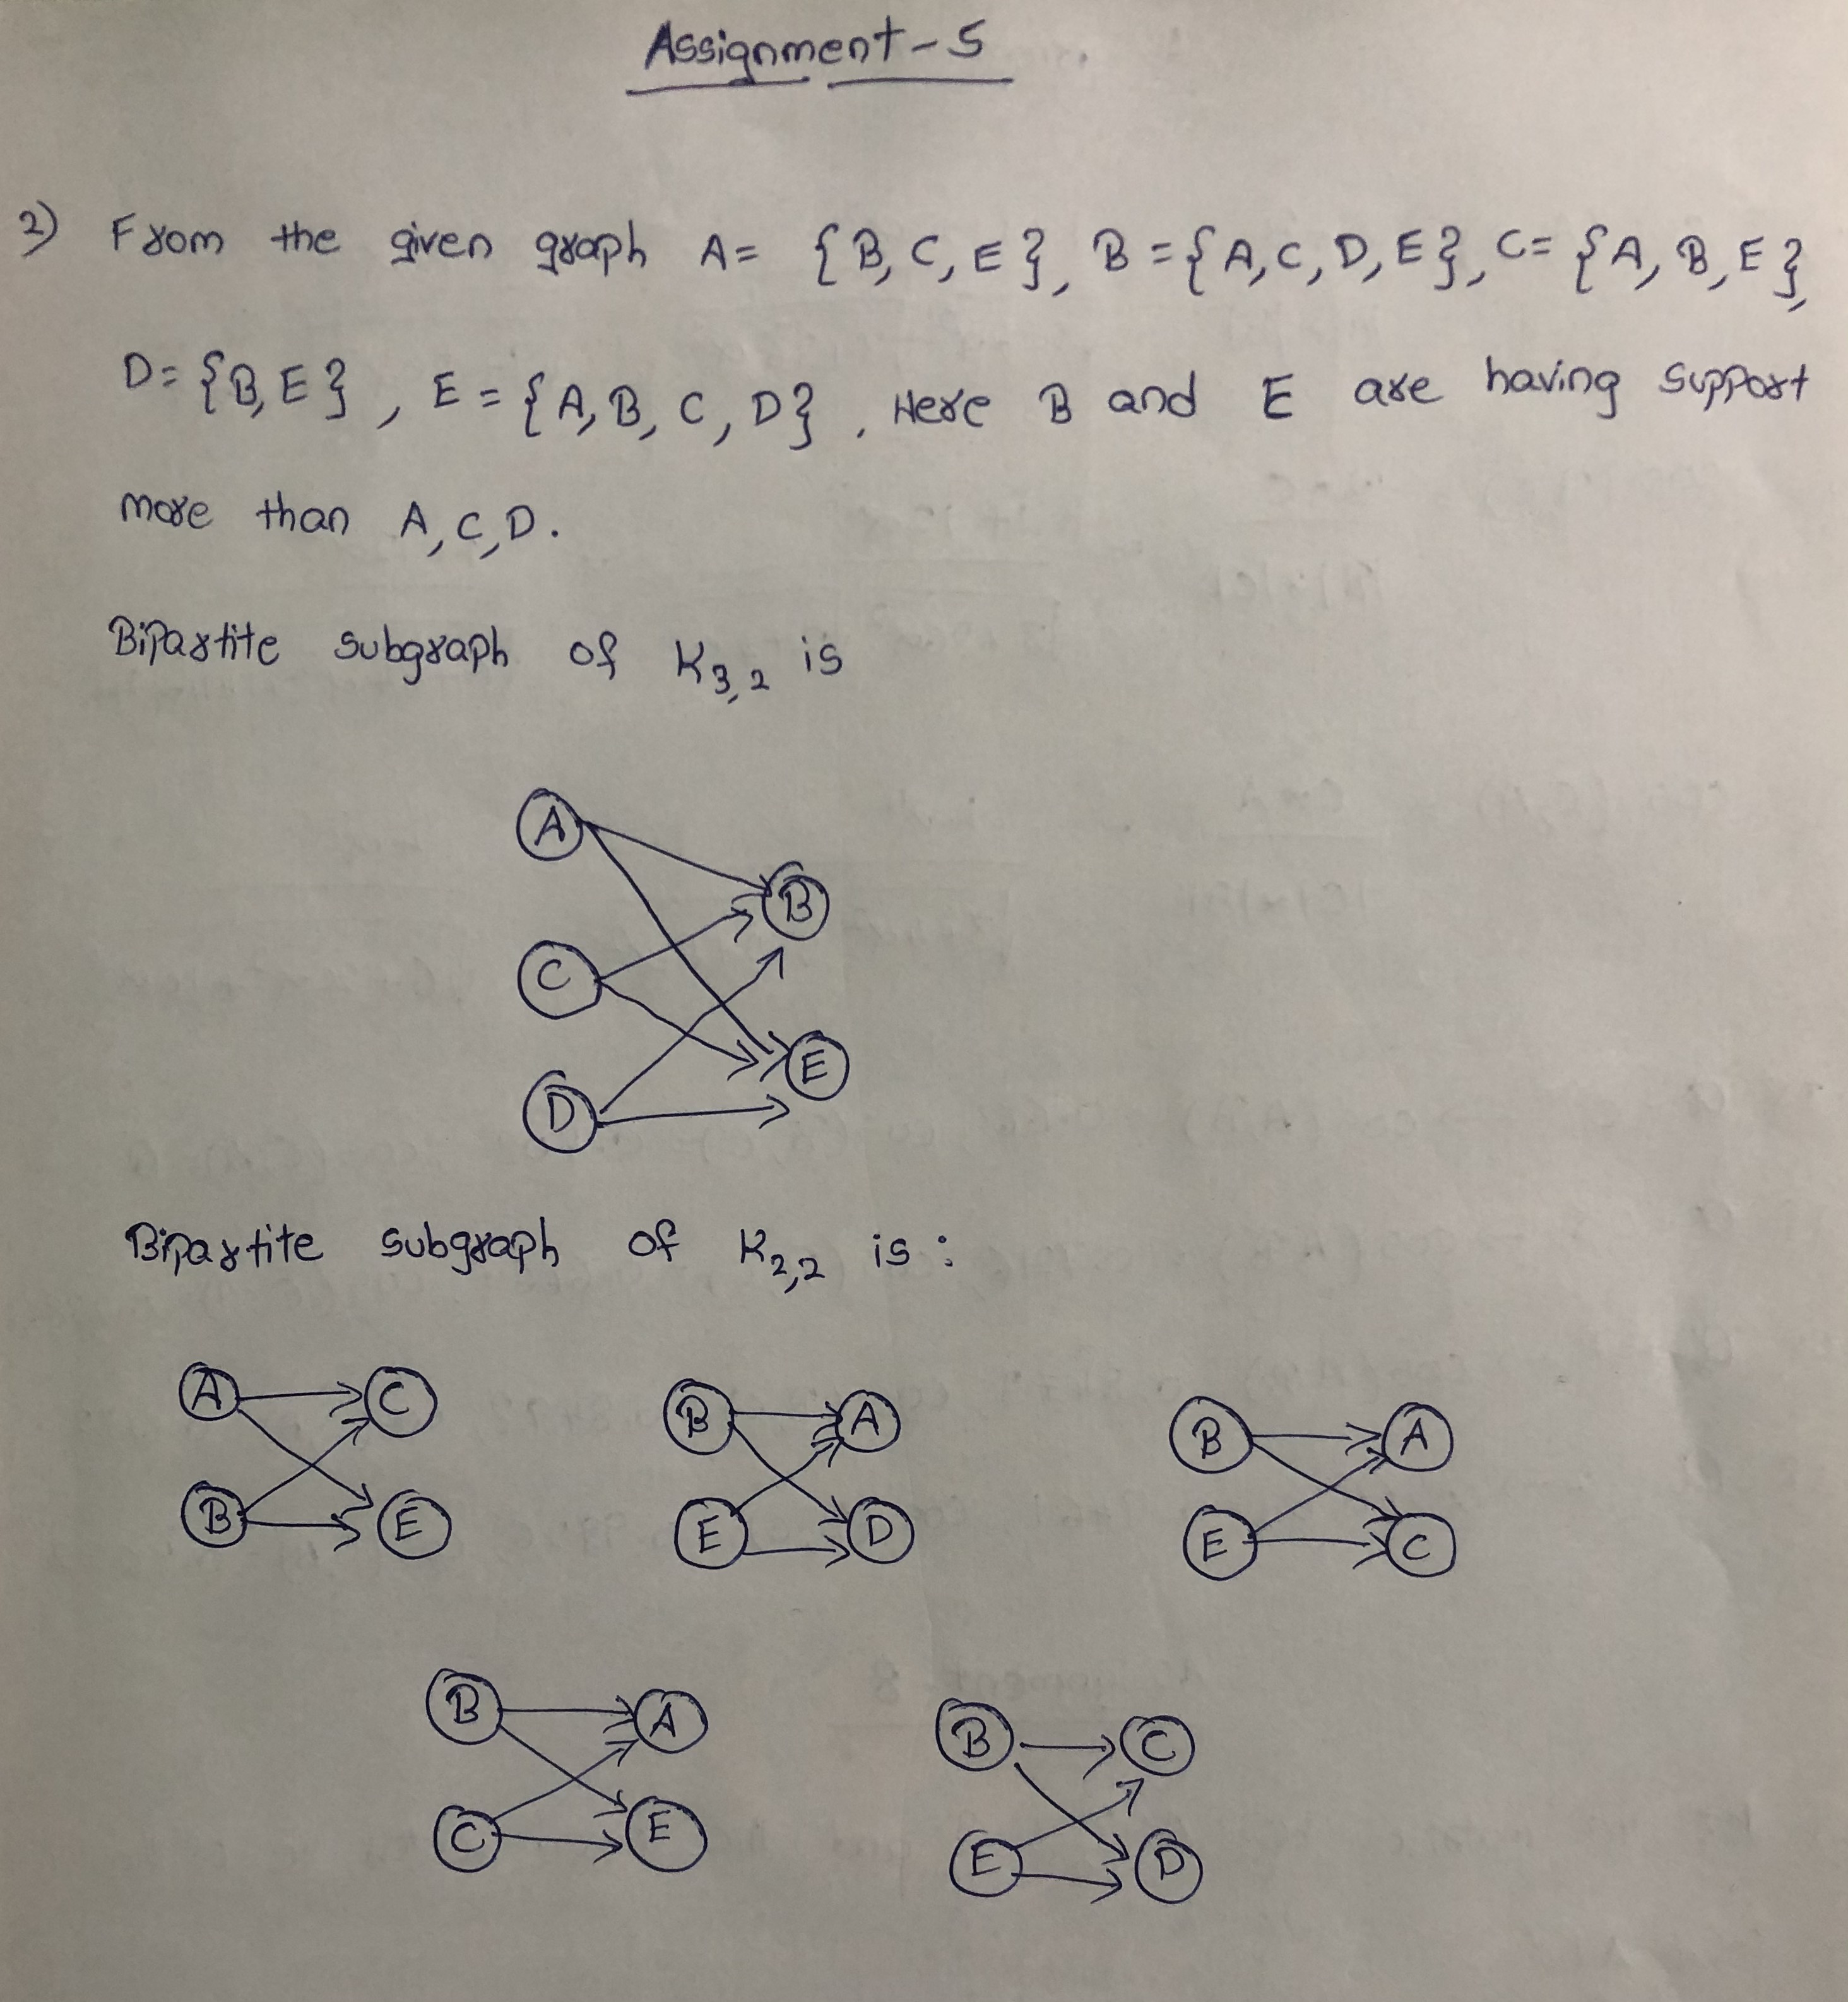 Assignment-5
2) From the given graph A= {B, C, E}, B={A,C,D,E}, C={A, B,E},
D={B,E}, E={A,B, C, D}. Here B and E are having support
more than A,C,D.
Bipartite subgraph of K3,2 is
A
B
C
E
D
Bipartite subgraph of K2,2 is:
A C B A B A
B E E D E C
B A B C
C E E D